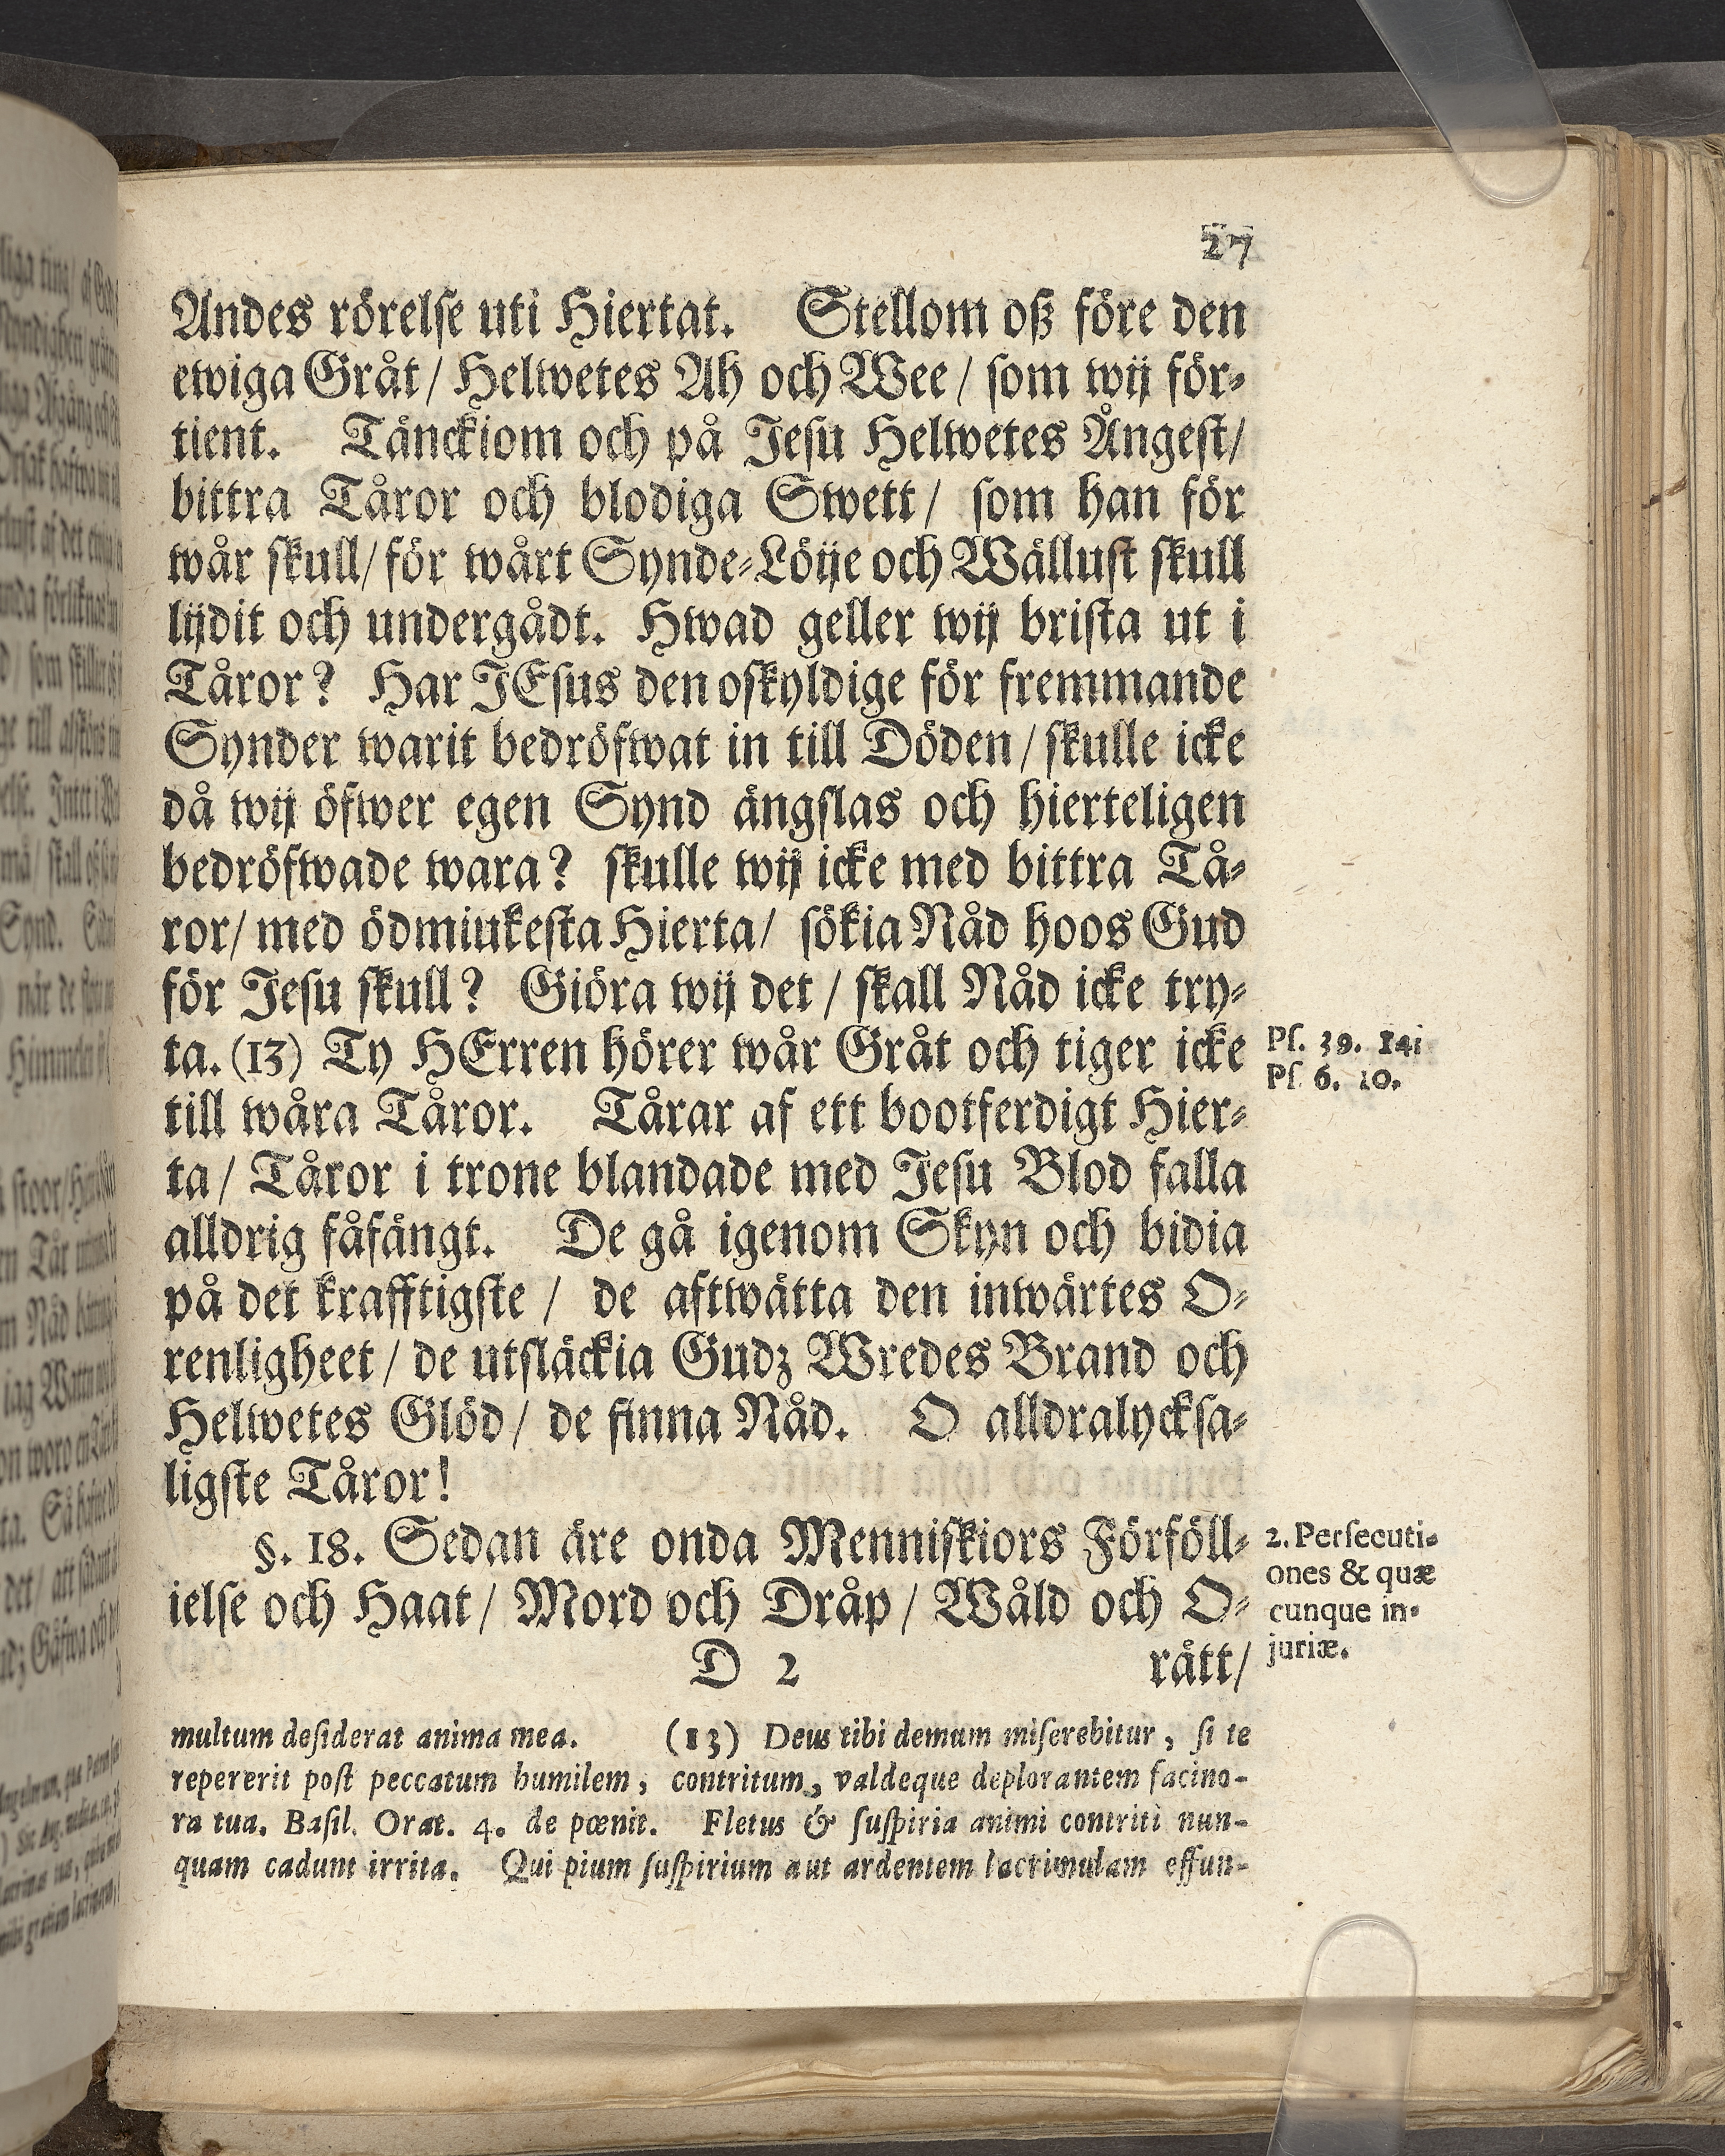 27
Andes rörelſe uti Hiertat. Stellom oß före den
ewiga Gråt / Helwetes Ah och Wee / ſom wij för⸗
tient. Tänckiom och på Jeſu Helwetes Ångeſt/
bittra Tåror och blodiga Swett / ſom han för
wår ſkull/ för wårt Synde⸗Löije och Wällust ſkull
lijdit och undergådt. Hwad geller wij briſta ut i
Tåror? Har JEſus den oſkyldige för fremmande
Synder warit bedröfwat in till Döden / ſkulle icke
då wij öfwer egen Synd ängſlas och hierteligen
bedröfwade wara? ſkulle wij icke med bittra Tå⸗
ror/ med ödmiukeſta Hierta/ ſökia Nåd hoos Gud
för Jeſu ſkull? Giöra wij det / ſkall Nåd icke try⸗
ta. (13) Ty HErren hörer wår Gråt och tiger icke
Pſ. 39. 14;
Pſ. 6. 10.
till wåra Tåror. Tårar af ett bootferdigt Hier⸗
ta / Tåror i trone blandade med Jeſu Blod falla
alldrig fåfängt. De gå igenom Skyn och bidia
på det krafftigſte / de aftwätta den inwärtes O⸗
renligheet / de utſläckia Gudz Wredes Brand och
Helwetes Glöd / de finna Nåd. O alldralyckſa⸗
ligſte Tåror!
§. 18. Sedan äre onda Menniſkiors Förföll⸗
ielſe och Haat / Mord och Dråp / Wåld och O⸗
2. Perſecuti-
ones & quæ
cunque in-
juriæ.
D 2 rätt/
multum deſiderat anima mea. (13) Deus tibi demum miſerebitur, ſi te
repererit poſt peccatum humilem, contritum, valdeque deplorantem facino-
ra tua. Baſil. Orat. 4. de pœnit. Fletus & ſuſpiria animi contriti nun-
quam cadunt irrita. Qui pium ſuſpirium aut ardentem lacrimulam effun-